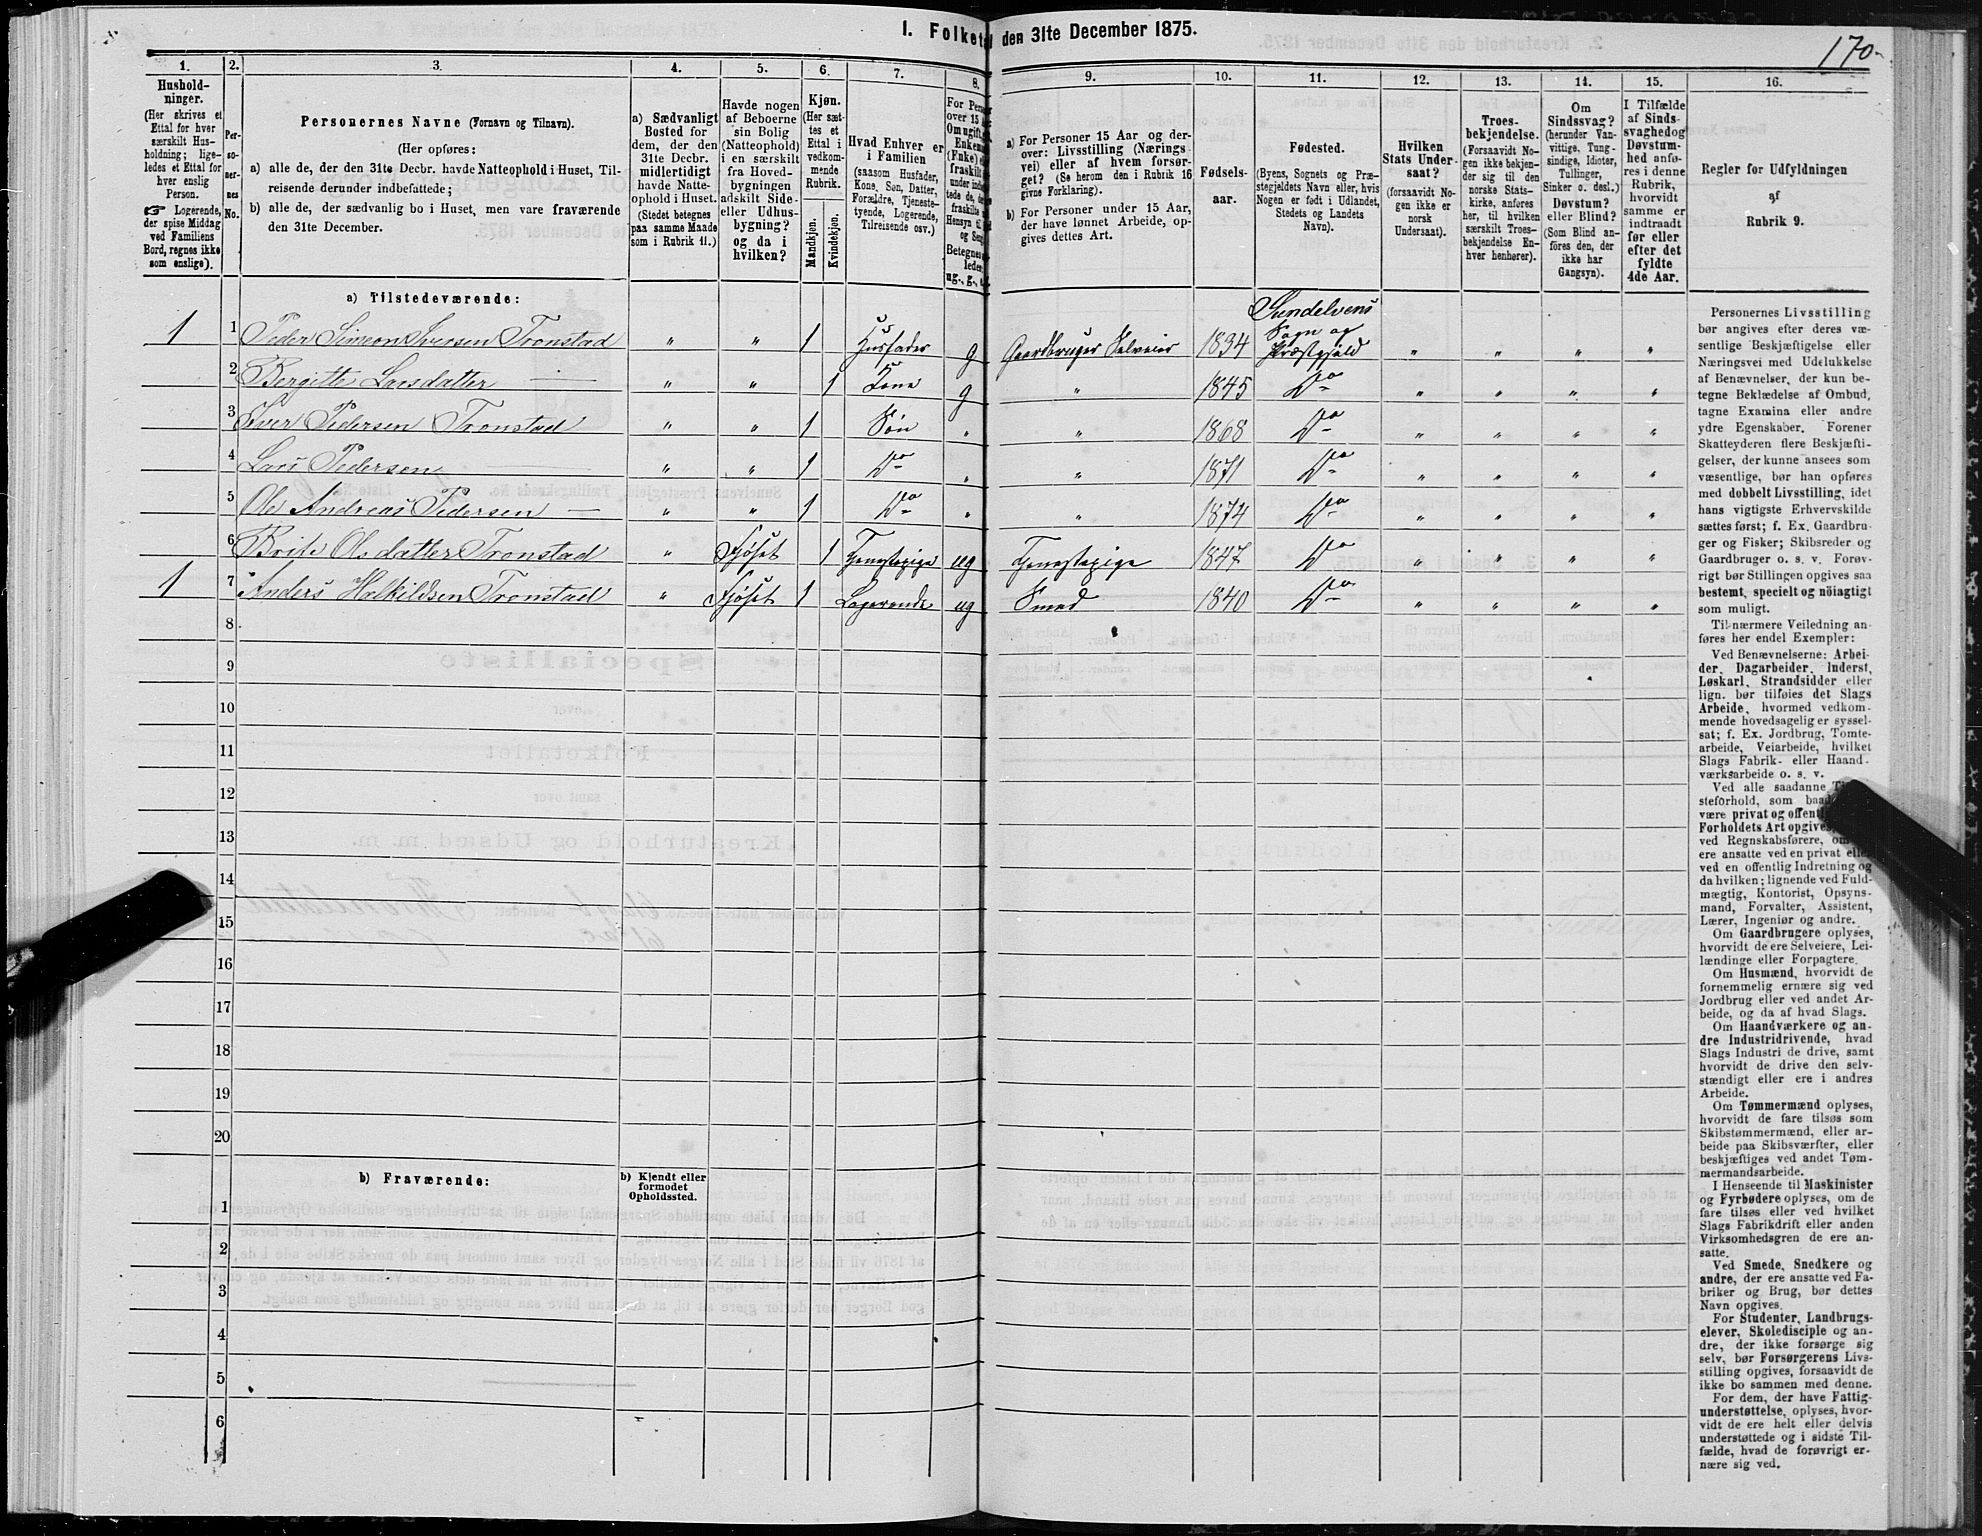 I. Folketal den 31te December 1875.
170.
1. 2. 3. 4. 5. 6. 7. 8. 9. 10. 11. 12. 13. 14. 15. 16.
Hushold-
ninger.
(Her skrives et
Ettal for hver
særskilt Hus-
holdning; lige-
ledes et Ettal for
hver enslig
Person.
☞ Logerende,
der spise Middag
ved Familiens
Bord, regnes ikke
som enslige).
Per-
so-
ner-
nes
No.
Personernes Navne (Fornavn og Tilnavn).
(Her opføres:
a) alle de, der den 31te Decbr. havde Natteophold i Huset, Til-
reisende derunder indbefattede;
b) alle de, der sædvanlig bo i Huset, men vare fraværende
den 31te December.
a) Sædvanligt
Bosted for
dem, der den
31te Decbr.
midlertidigt
havde Natte-
ophold i Huset.
(Stedet betegnes
paa samme Maade
som i Rubrik 11.)
Havde nogen
af Beboerne
sin Bolig
(Natteophold)
i en særskilt
fra Hoved-
bygningen
adskilt Side-
eller Udhus-
bygning?
og da i
hvilken?
Kjøn.
(Her sæt-
tes et
Ettal i
vedkom-
mende
Rubrik.
Mandkjøn.
Kvindekjøn.
Hvad Enhver er
i Familien
(saasom Husfader,
Kone, Søn, Datter,
Forældre, Tjeneste-
tyende, Logerende,
Tilreisende osv.)
For Perso
over 15 A
Om ugift,
Enkem
(Enke) e
fraskilt
a) For Personer 15 Aar og der-
over: Livsstilling (Nærings
vei) eller af hvem forsør-
get? (Se herom den i Rubrik 16
givne Forklaring).
b) For Personer under 15 Aar,
der have lønnet Arbeide, op-
gives dettes Art.
Fødsels-
aar.
Fødested.
(Byens, Sognets og Præ-
stegjeldets Navn eller, hvis
Nogen er født i Udlandet,
Stedets og Landets
Navn).
Hvilken
Stats Under-
saat?
(forsaavidt No-
gen ikke er
norsk
Undersaat).
Troes-
bekjendelse.
(Forsaavidt No-
gen ikke bekjen-
der sig til den
norske Stats-
kirke, anføres
her, til hvilken
særskilt Troes-
bekjendelse En-
hver henhører).
Om
Sindssvag?
(herunder Van-
vittige, Tung-
sindige, Idioter,
Tullinger,
Sinker o. desl.)
Døvstum?
eller Blind?
(Som Blind an-
føres den, der
ikke har
Gangsyn).
I Tilfælde
af Sinds-
svaghed og
Døvstum-
hed anfø-
res i denne
Rubrik,
hvorvidt
samme er
indtraadt
før eller
efter det
fyldte
4de Aar.
Regler for Udfyldningen
af
Rubrik 9.
a) Tilstedeværende:
Sundelvens
1 1 Peder Simeon Iversen Tronstad " " 1 Husfader g Gaardbruger Selveier 1834 Sogn og Præstgjæld " " " "
2 Bergitte Larsdatter — " " 1 Kone g " 1845 Do " " " "
3 Iver Pedersen Tronstad " " 1 Søn " " 1868 Do " " " "
4 Lars Pedersen — " " 1 Do " " 1871 Do " " " "
5 Ole Andreas Pedersen — " " 1 Do " " 1874 Do " " " "
6 Brite Olsdatter Tronstad " Fjøset 1 Tjenestepige ug Tjenestepige 1847 Do " " " "
1 7 Anders Halkildsen Tronstad " Fjøset 1 Logerende ug Smed 1840 Do " " " "
8
9
10
11
12
13
14
15
16
17
18
19
20
b) Fraværende:
b) Kjendt eller
formodet
Opholdssted.
1
2
3
4
5
6
Personernes Livsstilling
bør angives efter deres væ-
sentlige Beskjæftigelse eller
Næringsvei med Udelukkelse
af Benævnelser, der kun be-
tegne Beklædelse af Ombud,
tagne Examina eller andre
ydre Egenskaber. Forener
Skatteyderen flere Beskjæfti-
gelser, der kunne ansees som
væsentlige, bør han opføres
med dobbelt Livsstilling, idet
hans vigtigste Erhvervskilde
sættes først; f. Ex. Gaardbru-
ger og Fisker; Skibsreder og
Gaardbruger o. s. v. Forøv-
rigt bør Stillingen opgives saa
bestemt, specielt og nöiagtigt
som muligt.
Til nærmere Veiledning an-
føres her endel Exempler:
Ved Benævnelserne: Arbei-
der, Dagarbeider, Inderst,
Løskarl, Strandsidder eller
lign. bør tilføies det Slags
Arbeide, hvormed vedkom-
mende hovedsagelig er syssel-
sat; f. Ex. Jordbrug, Tomte-
arbeide, Veiarbeide, hvilket
Slags Fabrik- eller Haand-
værksarbeide o. s. v.
Ved alle saadanne
steforhold, som
være privat og
Forholdets Art
ved Regnskabsførere,
ere ansatte ved en privat
ved en offentlig Indretning og
da hvilken; lignende ved Fuld-
mægtig, Kontorist, Opsyns-
mand, Forvalter, Assistent,
Lærer, Ingeniør og andre.
Om Gaardbrugere oplyses,
hvorvidt de ere Selveiere, Lei-
lændinge eller Forpagtere.
Om Husmænd, hvorvidt de
fornemmelig ernære sig ved
Jordbrug eller ved andet Ar-
beide, og da af hvad Slags.
Om Haandværkere og an-
dre Industridrivende, hvad
Slags Industri de drive, samt
hvorvidt de drive den selv-
stændigt eller ere i andres
Arbeide.
Om Tømmermænd oplyses,
hvorvidt de fare tilsøs som
Skibstømmermænd, eller ar-
beide paa Skibsværfter, eller
beskjæftiges ved andet Tøm-
mermandsarbeide.
I Henseende til Maskinister
og Fyrbødere oplyses, om de
fare tilsøs eller ved hvilket
Slags Fabrikdrift eller anden
Virksomhedsgren de ere an-
satte.
Ved Smede, Snedkere og
andre, der ere ansatte ved Fa-
briker og Brug, bør dettes
Navn opgives.
For Studenter, Landbrugs-
elever, Skoledisciple og an-
dre, der ikke forsørge sig
selv, bør Forsørgerens Livs-
stilling opgives, forsaavidt de
ikke bo sammen med denne.
For dem, der have Fattig-
understøttelse, oplyses, hvor-
vidt de ere helt eller delvis
understøttede og i sidste Til-
fælde, hvad de forøvrigt er-
nære sig ved.